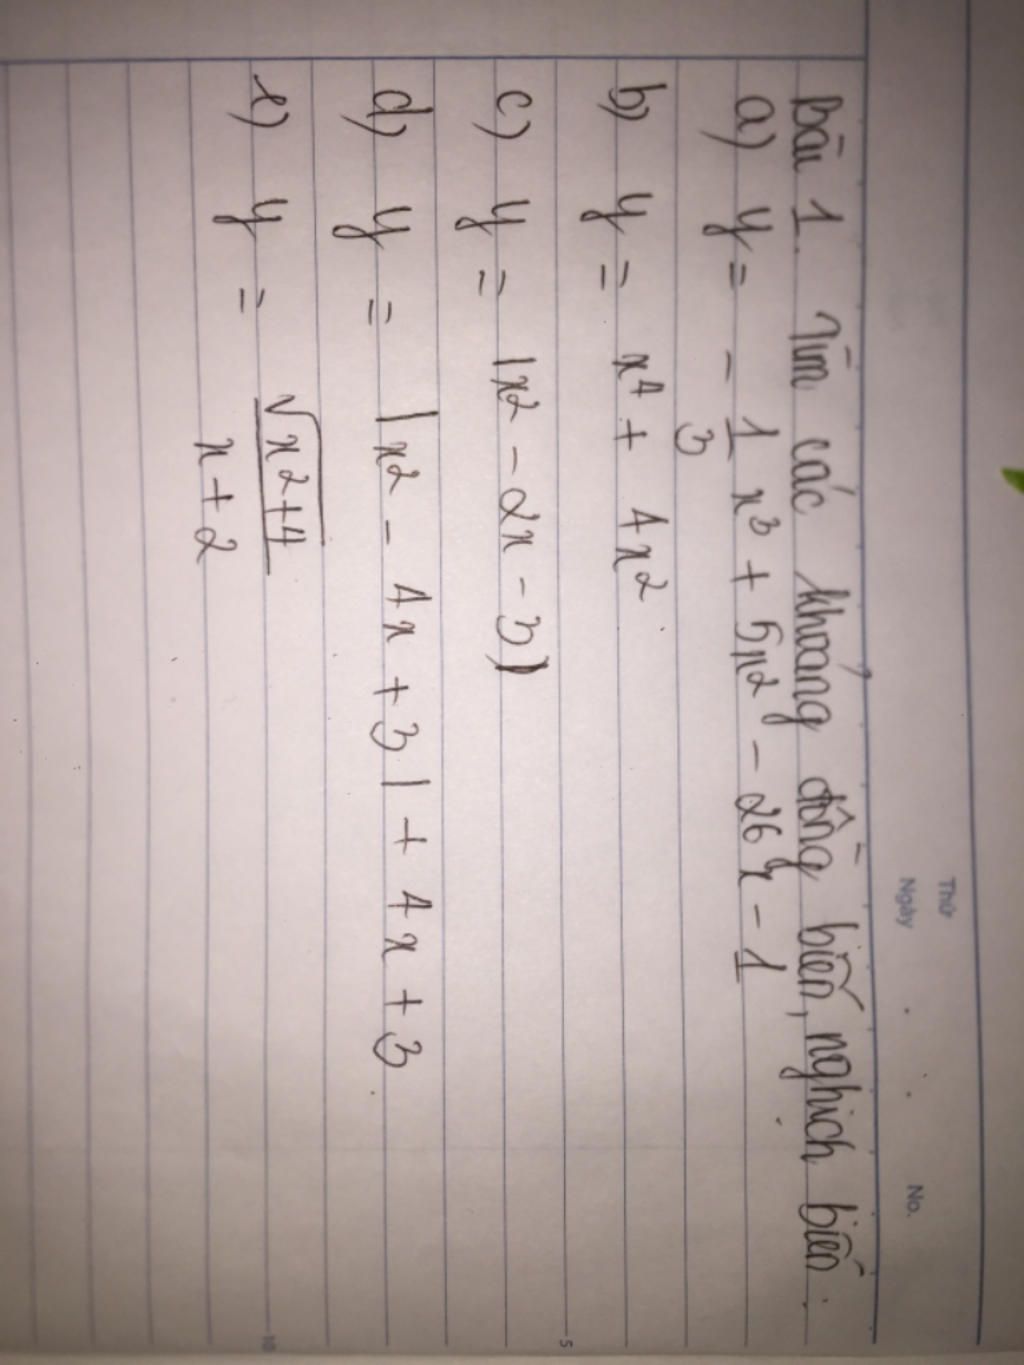 Thứ
Ngày . . No.
Bài 1. Tìm các khoảng đồng biến, nghịch biến.
a) y = - 1/3 x³ + 5x² - 26x - 1
b) y = x⁴ + 4x²
c) y = |x² - 2x - 3|
d) y = |x² - 4x + 3| + 4x + 3
e) y = √(x²+4) / x+2
5
10